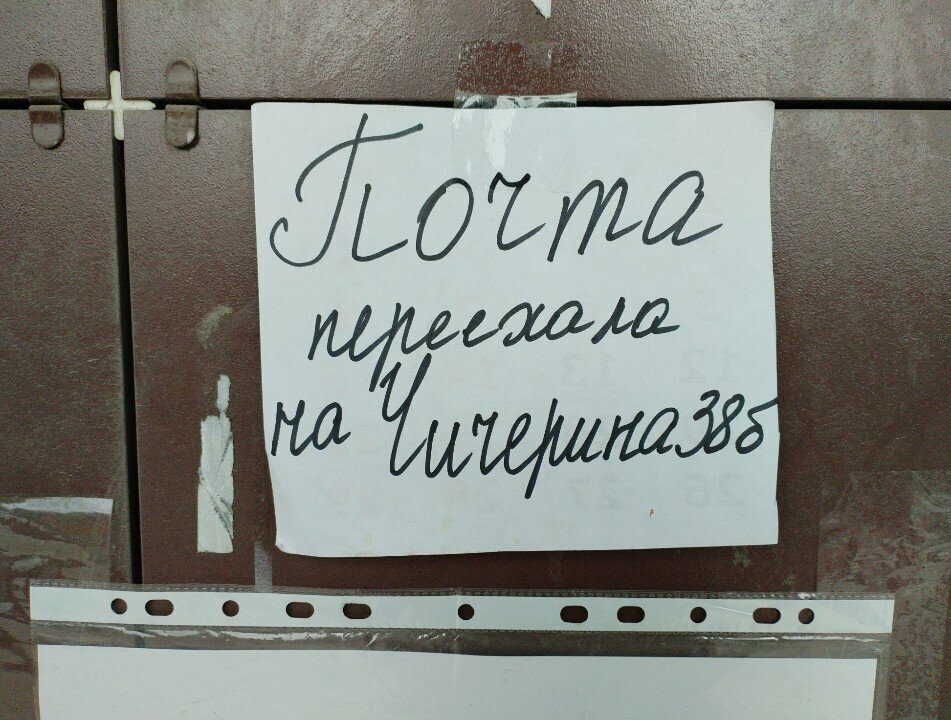 Почта
переехала
на Чичерина 38б